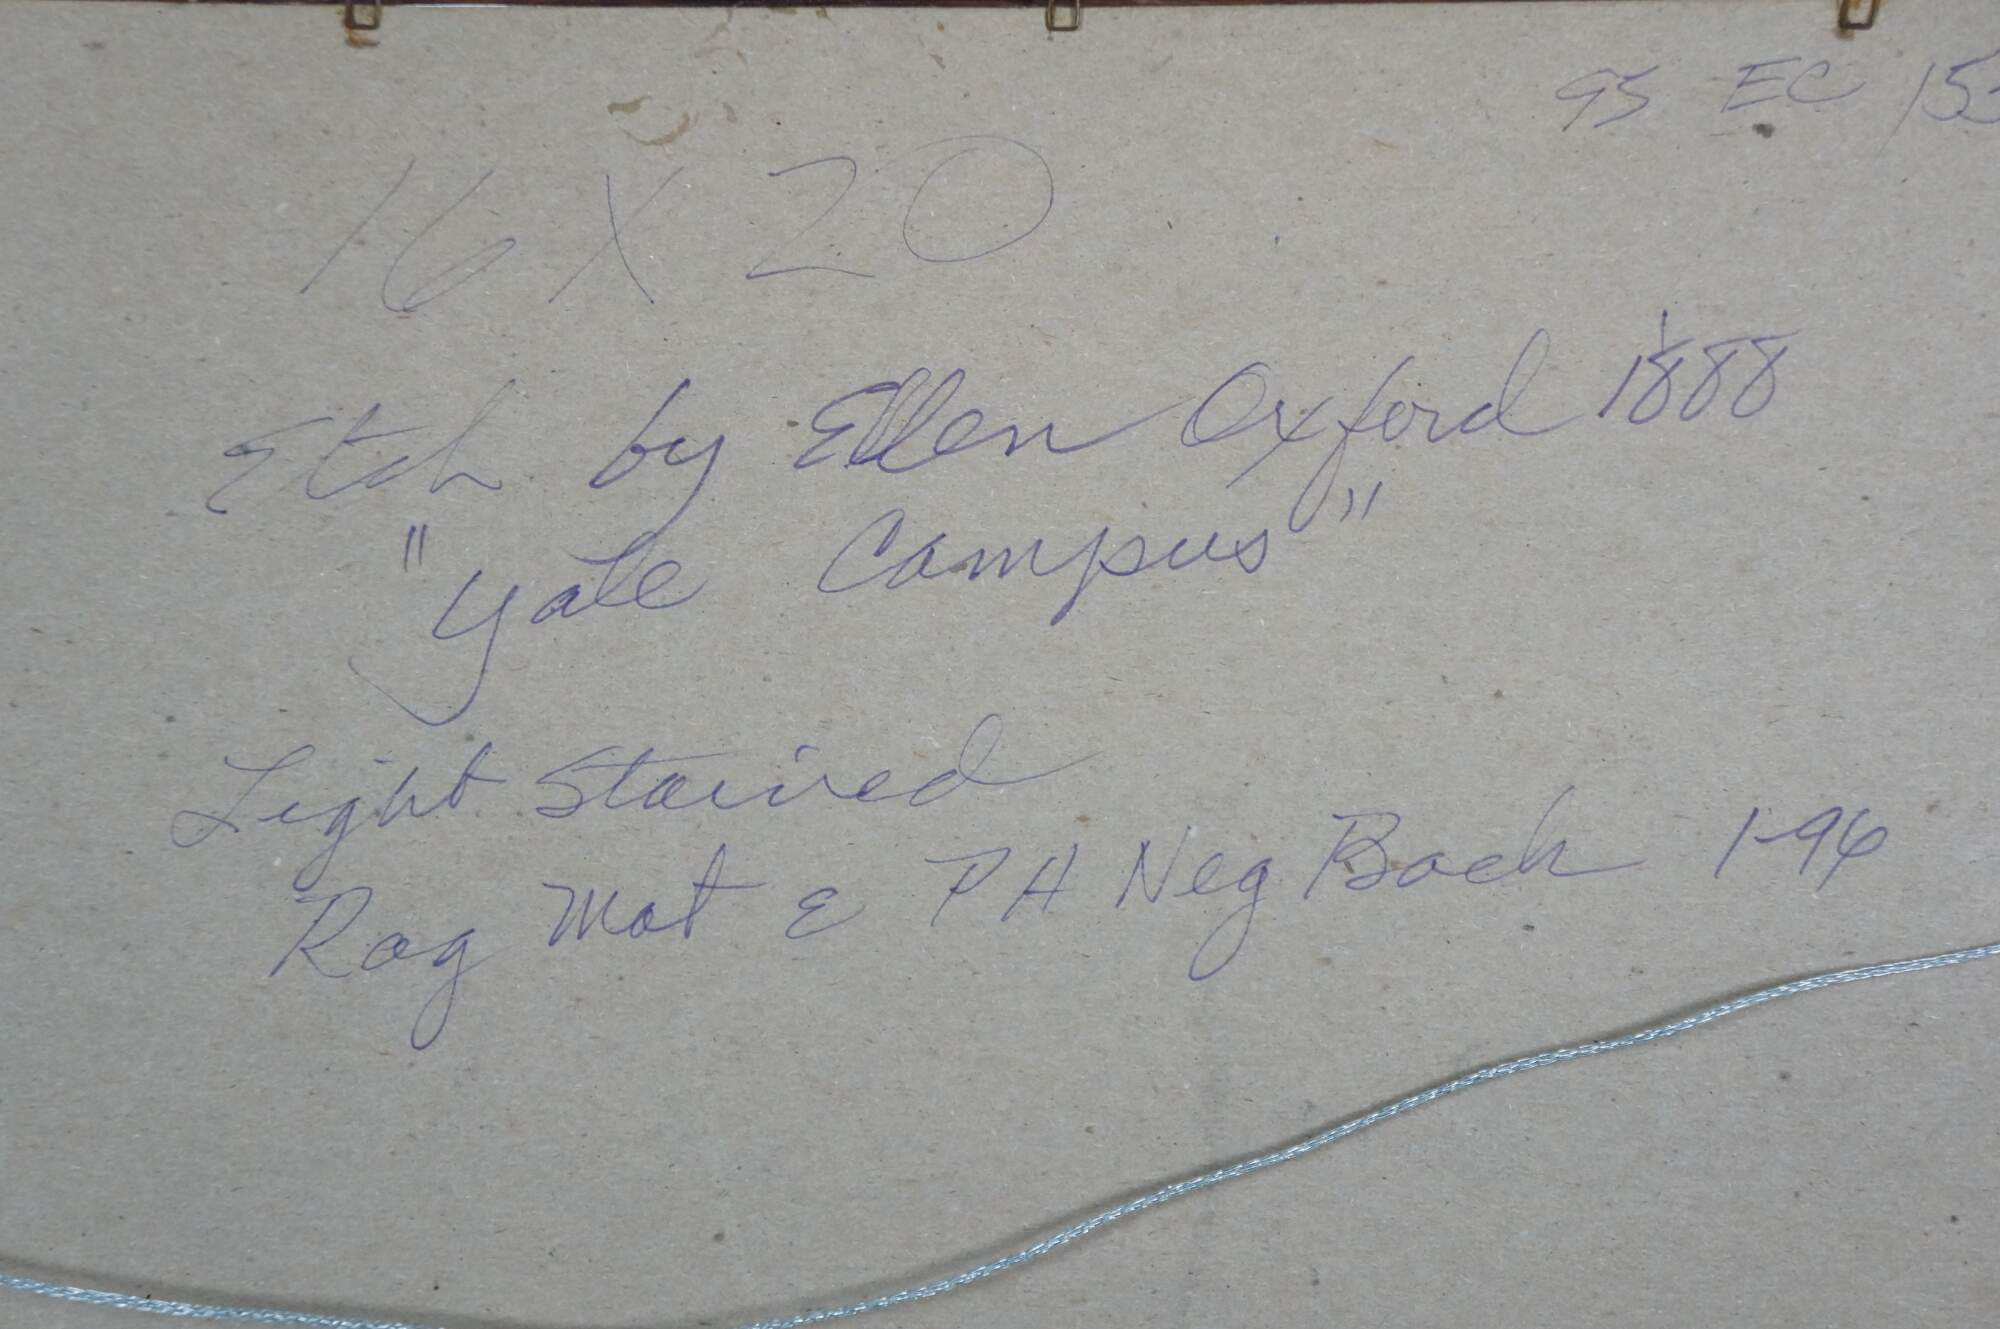 95 EC 155
16 X 20
Etch by Ellen Oxford 1888
"Yale Campus"
Light Stained
Rag Mat & PH Neg Back 1-96